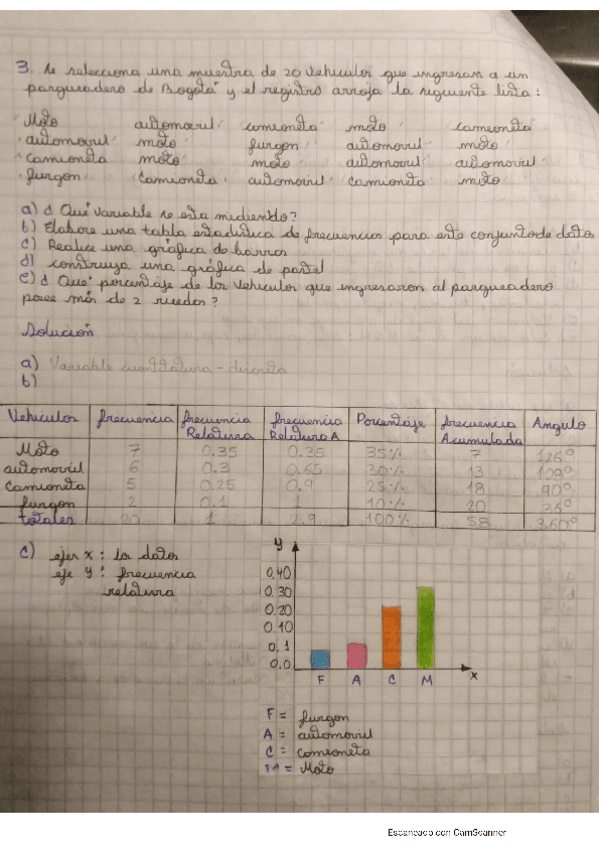 3. Se selecciona una muestra de 20 vehiculos que ingresan a un
parqueadero de Bogotá y el registro arroja la siguiente lista:
Moto automovil camioneta moto camioneta
automovil moto furgon automovil moto
camioneta moto moto automovil automovil
furgon camioneta automovil camioneta moto
a) ¿ Qué variable se esta midiendo?
b) Elabore una tabla estadistica de frecuencias para este conjunto de datos
c) Realice una gráfica de barras
d) construya una gráfica de pastel
e) ¿ Que porcentaje de los vehiculos que ingresaron al parqueadero
posee más de 2 ruedas?
Solución
a) Variable cuantitativa - discreta
b)
Vehiculos frecuencia frecuencia Relativa frecuencia Relativa A Porcentaje frecuencia Acumulada Angulo
Moto 7 0.35 0.35 35% 7 126°
automovil 6 0.3 0.65 30% 13 108°
camioneta 5 0.25 0.9 25% 18 90°
furgon 2 0.1 1 10% 20 36°
totales 20 1 2.9 100% 58 360°
c) ejes x: los datos
eje y: frecuencia
relativa
y
0.40
0.30
0.20
0.10
0.1
0.0
F A C M x
F = furgon
A = automovil
C = camioneta
M = Moto
Escaneado con CamScanner